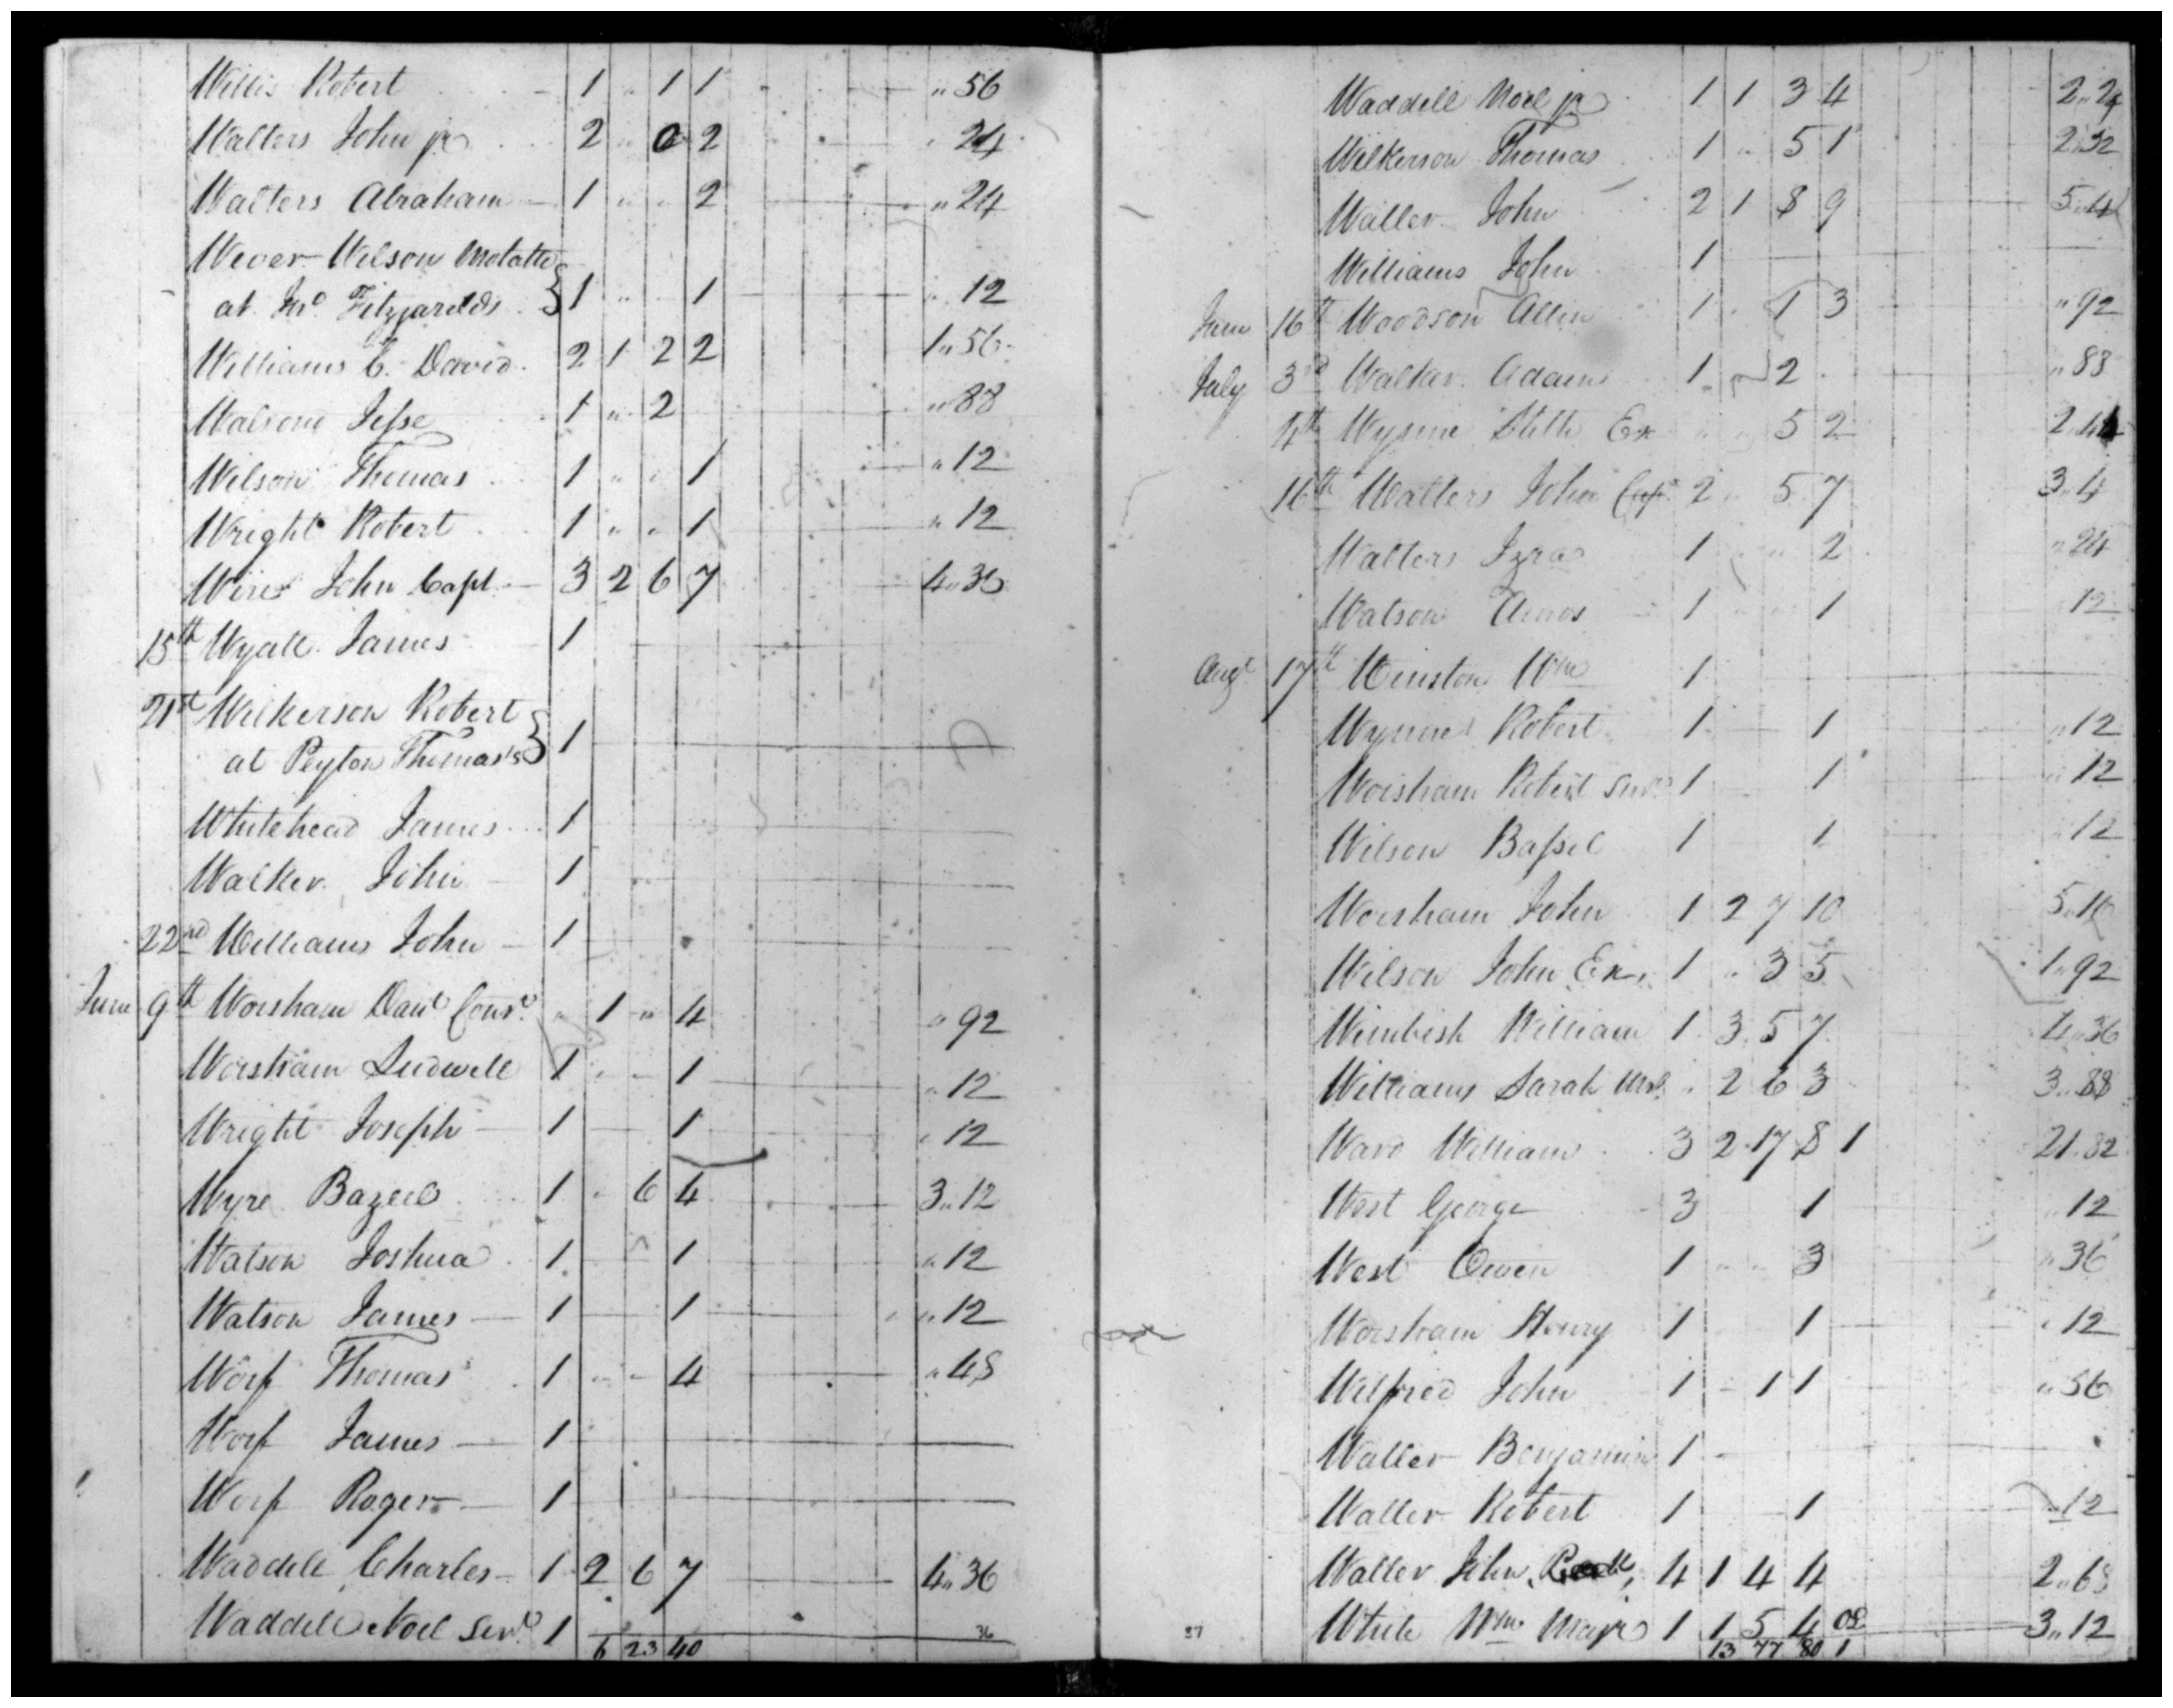 Willis Robert 1 " 1 1 " 56
Walters John jr 2 " 0 2 " 24
Walters Abraham 1 " " 2 " 24
Wever Wilson Molatto
at Jno. Fitzjareld's } 1 " 1 " 12
Williams C. David 2 1 2 2 1 " 56
Jesse 1 " 2 " 88
Wilson Thomas 1 " " 1 " 12
Wright Robert 1 " " 1 " 12
Wire John Capt. 3 2 6 7 4 " 36
15th Wyatt James 1
21st Wilkerson Robert
at Peyton Thomas's } 1
Whitehead James 1
Walker John 1
22nd Williams John 1
June 9th Worsham Danl Const. " 1 " 4 " 92
Worsham Ludwell 1 " 1 " 12
Wright Joseph 1 1 " 12
Wyre Bazeel 1 " 6 4 3 " 12
Watson Joshua 1 1 " 12
Watson James 1 1 " 12
Worf Thomas 1 " 4 " 48
Worf James 1
Worf Roger 1
Waddell Charles 1 2 6 7 4 " 36
Waddell Noel Senr. 1
6 23 40 36
Waddell Noel jr 1 1 3 4 2 " 24
Wilkerson Thomas 1 " 5 1 2 " 32
Waller John 2 1 8 9 5 "
Williams John 1
June 16th Woodson Allen 1 " 1 3 " 92
July 3rd Walker Adam 1 2 " 88
4th Wynne Stith Ex 5 2 2 " 44
16th Walters John Capt. 2 " 5 7 3 " 4
Walters Izra 1 " 2 " 24
Watson Amos 1 1 12
Augt. 17th Winston Wm 1
Wynne Robert 1 1 " 12
Worsham Robert Senr. 1 1 " 12
Wilson Bassel 1 1 " 12
Worsham John 1 2 7 10 5 " 16
Wilson John Ex. 1 " 3 5 1 " 92
Wimbish William 1 3 5 7 4 " 36
Williams Sarah Mrs. " 2 6 3 3 " 88
Ward William 3 2 17 8 1 21 " 32
West George 3 1 " 12
West Owen 1 " " 3 " 36
Worsham Henry 1 1 " 12
Wilfred John 1 1 1 " 56
Waller Benjamin 1
Waller Robert 1 1 " 12
Waller John 4 1 4 4 2 " 68
37 White Wm Majr 1 1 5 4 3 " 12
13 77 80 1